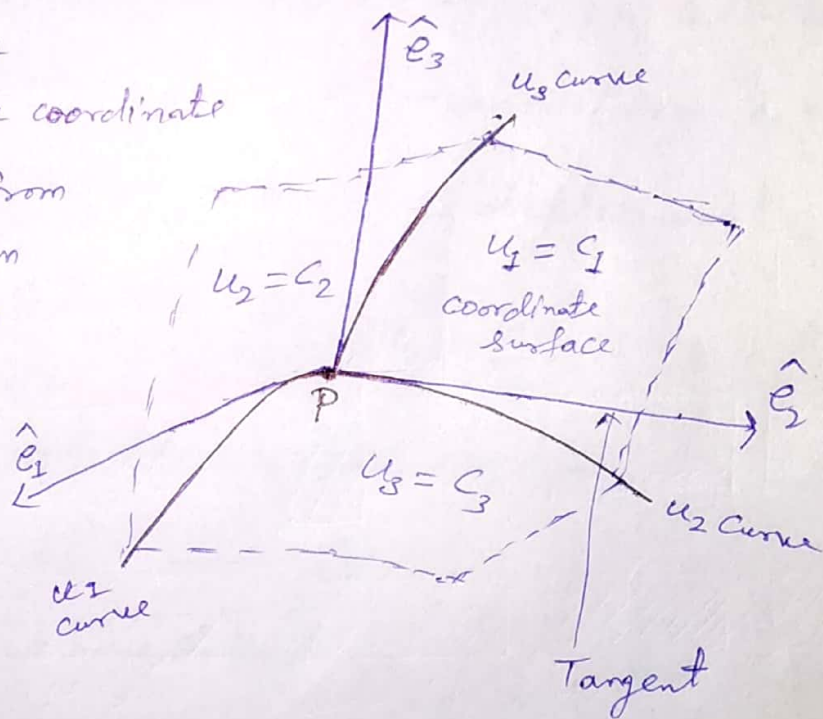 ê₃
u₃ curve
coordinate
from
u₂ = C₂
u₁ = C₁
coordinate
surface
P
ê₂
ê₁
u₃ = C₃
u₂ curve
u1
curve
Tangent